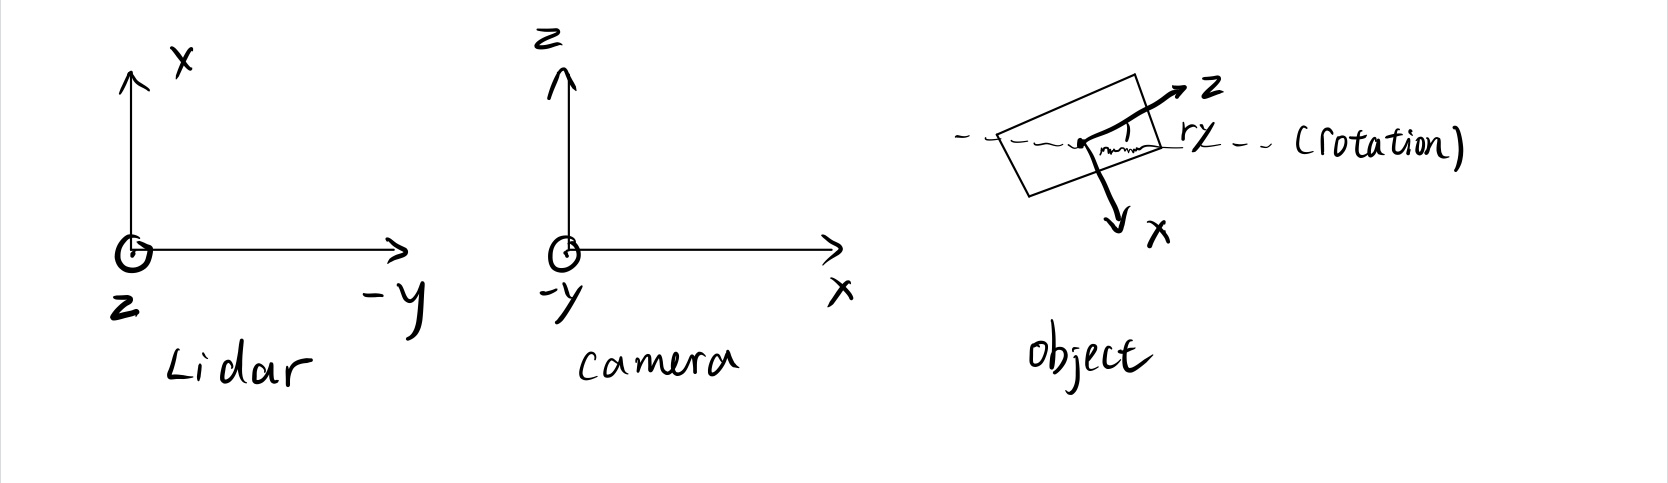 x
z
-y
Lidar
z
x
-y
camera
z
ry
(rotation)
x
object